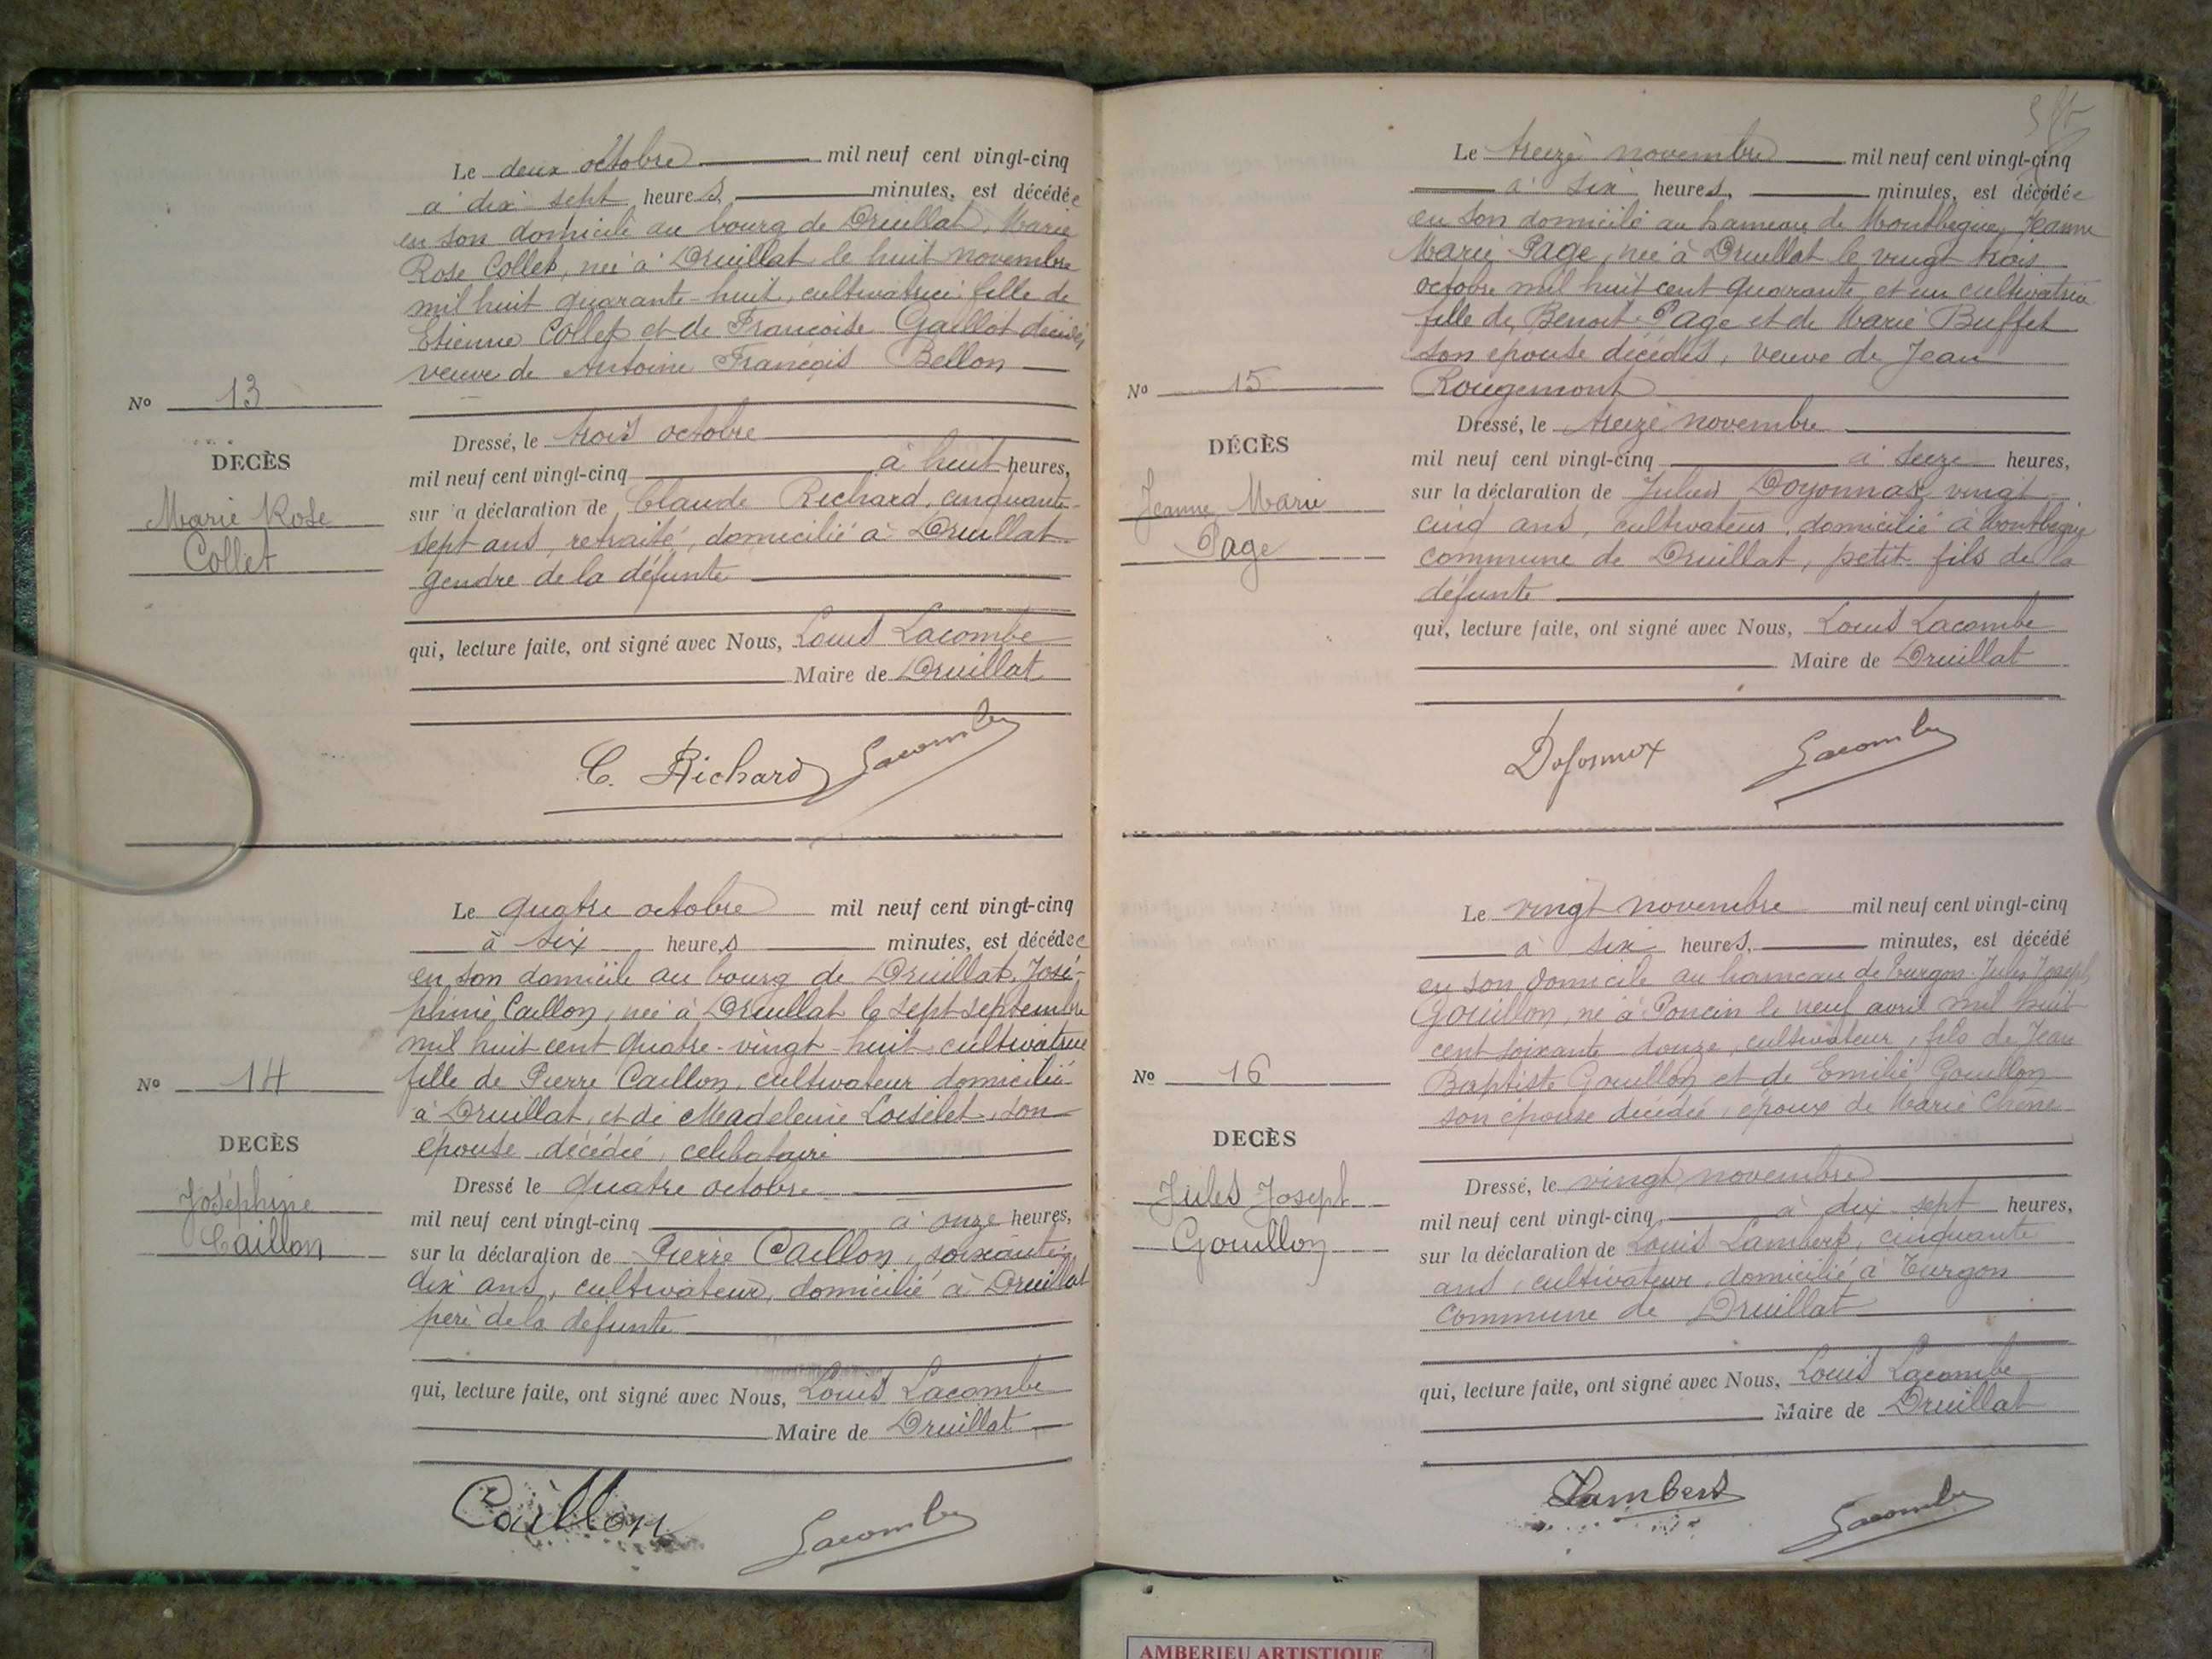 Le deux octobre mil neuf cent vingt-cinq
à dix sept heures, minutes, est décédée
en son domicile au bourg de Druillat, Marie
Rose Collet, née à Druillat le huit novembre
mil huit quarante-huit, cultivatrice, fille de
Etienne Collet et de Françoise Gaillot décédés
veuve de Antoine François Bellon
No 13
DECÈS
Marie Rose
Collet
Dressé, le trois octobre
mil neuf cent vingt-cinq à huit heures,
sur la déclaration de Claude Richard, cinquante-
sept ans, retraité, domicilié à Druillat
gendre de la défunte
qui, lecture faite, ont signé avec Nous, Louis Lacombe
Maire de Druillat
C. Richard Lacombe
Le quatre octobre mil neuf cent vingt-cinq
à six heures minutes, est décédée
en son domicile au bourg de Druillat, José-
phine Caillon, née à Druillat le sept septembre
mil huit cent quatre-vingt-huit, cultivatrice
fille de Pierre Caillon, cultivateur domicilié
à Druillat, et de Madeleine Loiselet, son
épouse décédée, célibataire
No 14
DECÈS
Joséphine
Caillon
Dressé le quatre octobre
mil neuf cent vingt-cinq à onze heures,
sur la déclaration de Pierre Caillon, soixante
dix ans, cultivateur, domicilié à Druillat
père de la défunte
qui, lecture faite, ont signé avec Nous, Louis Lacombe
Maire de Druillat
Caillon Lacombe
Le treize novembre mil neuf cent vingt-cinq
à six heures, minutes, est décédée
en son domicile au hameau de Montbegue, Jeanne
Marie Page, née à Druillat le vingt trois
octobre mil huit cent quarante et un cultivatrice
fille de Benoit Page et de Marie Buffet
son épouse décédés, veuve de Jean
Rougemont
No 15
DÉCÈS
Jeanne Marie
Page
Dressé, le treize novembre
mil neuf cent vingt-cinq à seize heures,
sur la déclaration de Julien Doyonnax vingt
cinq ans, cultivateur, domicilié à Montbegue
commune de Druillat, petit-fils de la
défunte
qui, lecture faite, ont signé avec Nous, Louis Lacombe
Maire de Druillat
Lacombe
Le vingt novembre mil neuf cent vingt-cinq
à six heures, minutes, est décédé
en son domicile au hameau de Turgon Jules Joseph
Gouillon, né à Poncin le neuf avril mil huit
cent soixante-douze, cultivateur, fils de Jean
Baptiste Gouillon et de Emilie Gouillon
son épouse décédée, époux de Marie Chêne
No 16
DECÈS
Jules Joseph
Gouillon
Dressé, le vingt novembre
mil neuf cent vingt-cinq, à dix sept heures,
sur la déclaration de Louis Lambert, cinquante
ans, cultivateur, domicilié à Turgon
commune de Druillat
qui, lecture faite, ont signé avec Nous, Louis Lacombe
Maire de Druillat
Lambert Lacombe
AMBERIEU ARTISTIQUE